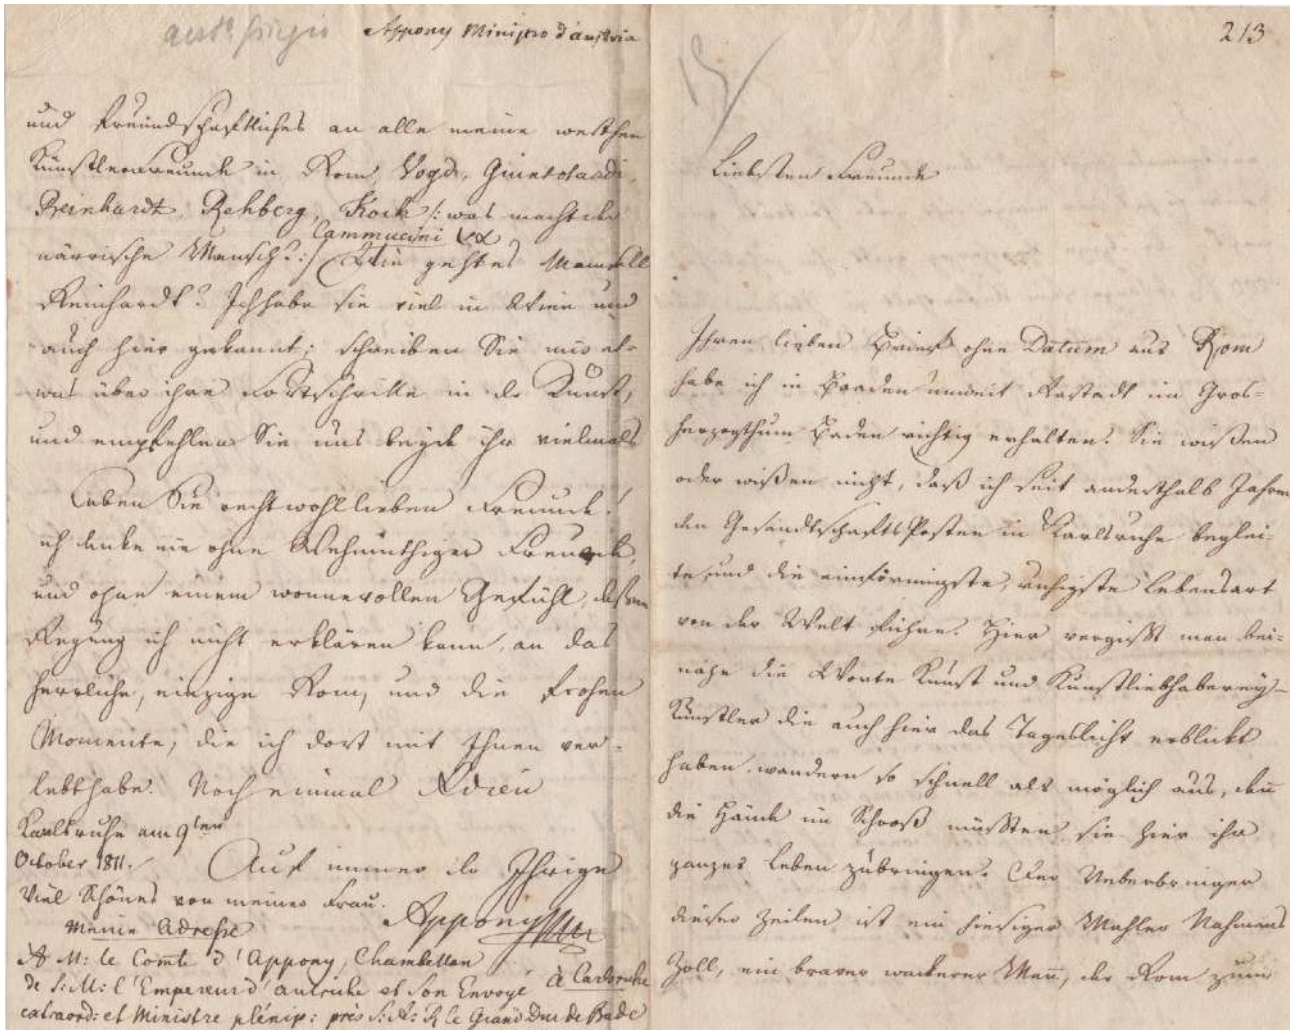 Appony Ministro d'austria
und freundschaftliches an alle meine werthen
Künstlerfreunde in Rom, Vogd, Giuntotardi,
Reinhardt, Rehberg, Koch /: was macht der
Cammucini
närrische Mensch? :/ Wie geht es Mamsell
Reinhardt? Ich habe sie viel in Wien und
auch hier gekannt; schreiben Sie mir et-
was über ihre Fortschritte in der Kunst,
und empfehlen Sie uns beyde ihr vielmals
Leben Sie recht wohl lieber Freund!
ich denke nie ohne Wehmüthiger Freude,
und ohne einem wonnevollen Gefühl, dessen
Regung ich nicht erklären kann, an das
herrliche, einzige Rom, und die frohen
Momente, die ich dort mit Ihnen ver-
lebt habe. Noch einmal Adieu
Karlsruhe am 9ten
October 1811. Auf immer der Ihrige
Viel Schönes von meiner Frau.
Appony
Meine Adresse
A M: le Comte d'Appony, Chambellan
de S: M: l'Empereur d'autriche et Son Envoyé à Carlsruhe
extraord: et Ministre plénip: près S: A: R le Grand Duc de Bade
213
Liebster Freund
Ihren lieben Brief ohne Datum aus Rom
habe ich in Baaden unweit Rastadt im Gros-
herzogthum Baden richtig erhalten. Sie wißen
oder wißen nicht, daß ich seit anderthalb Jahren
den Gesandtschafts Posten in Karlsruhe beglei-
te, und die einförmigste, ruhigste Lebensart
von der Welt führe. Hier vergißt man bei-
nahe die Worte Kunst und Kunstliebhaberey -
Künstler die auch hier das Tageslicht erblickt
haben wandern so schnell als möglich aus, den
die Hände im Schooß müßten sie hier ihr
ganzes Leben zubringen. Der Ueberbringer
dieser Zeilen ist ein hiesiger Mahler Nahmens
Zoll, ein braver wackerer Man, der Rom zum